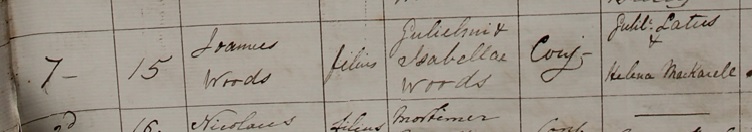 7- 15 Joannes Woods filius Gulielmi & Isabellae Woods Conj- Guli: Latus & Helena Mackarell
Nicolaus filius Mortimer